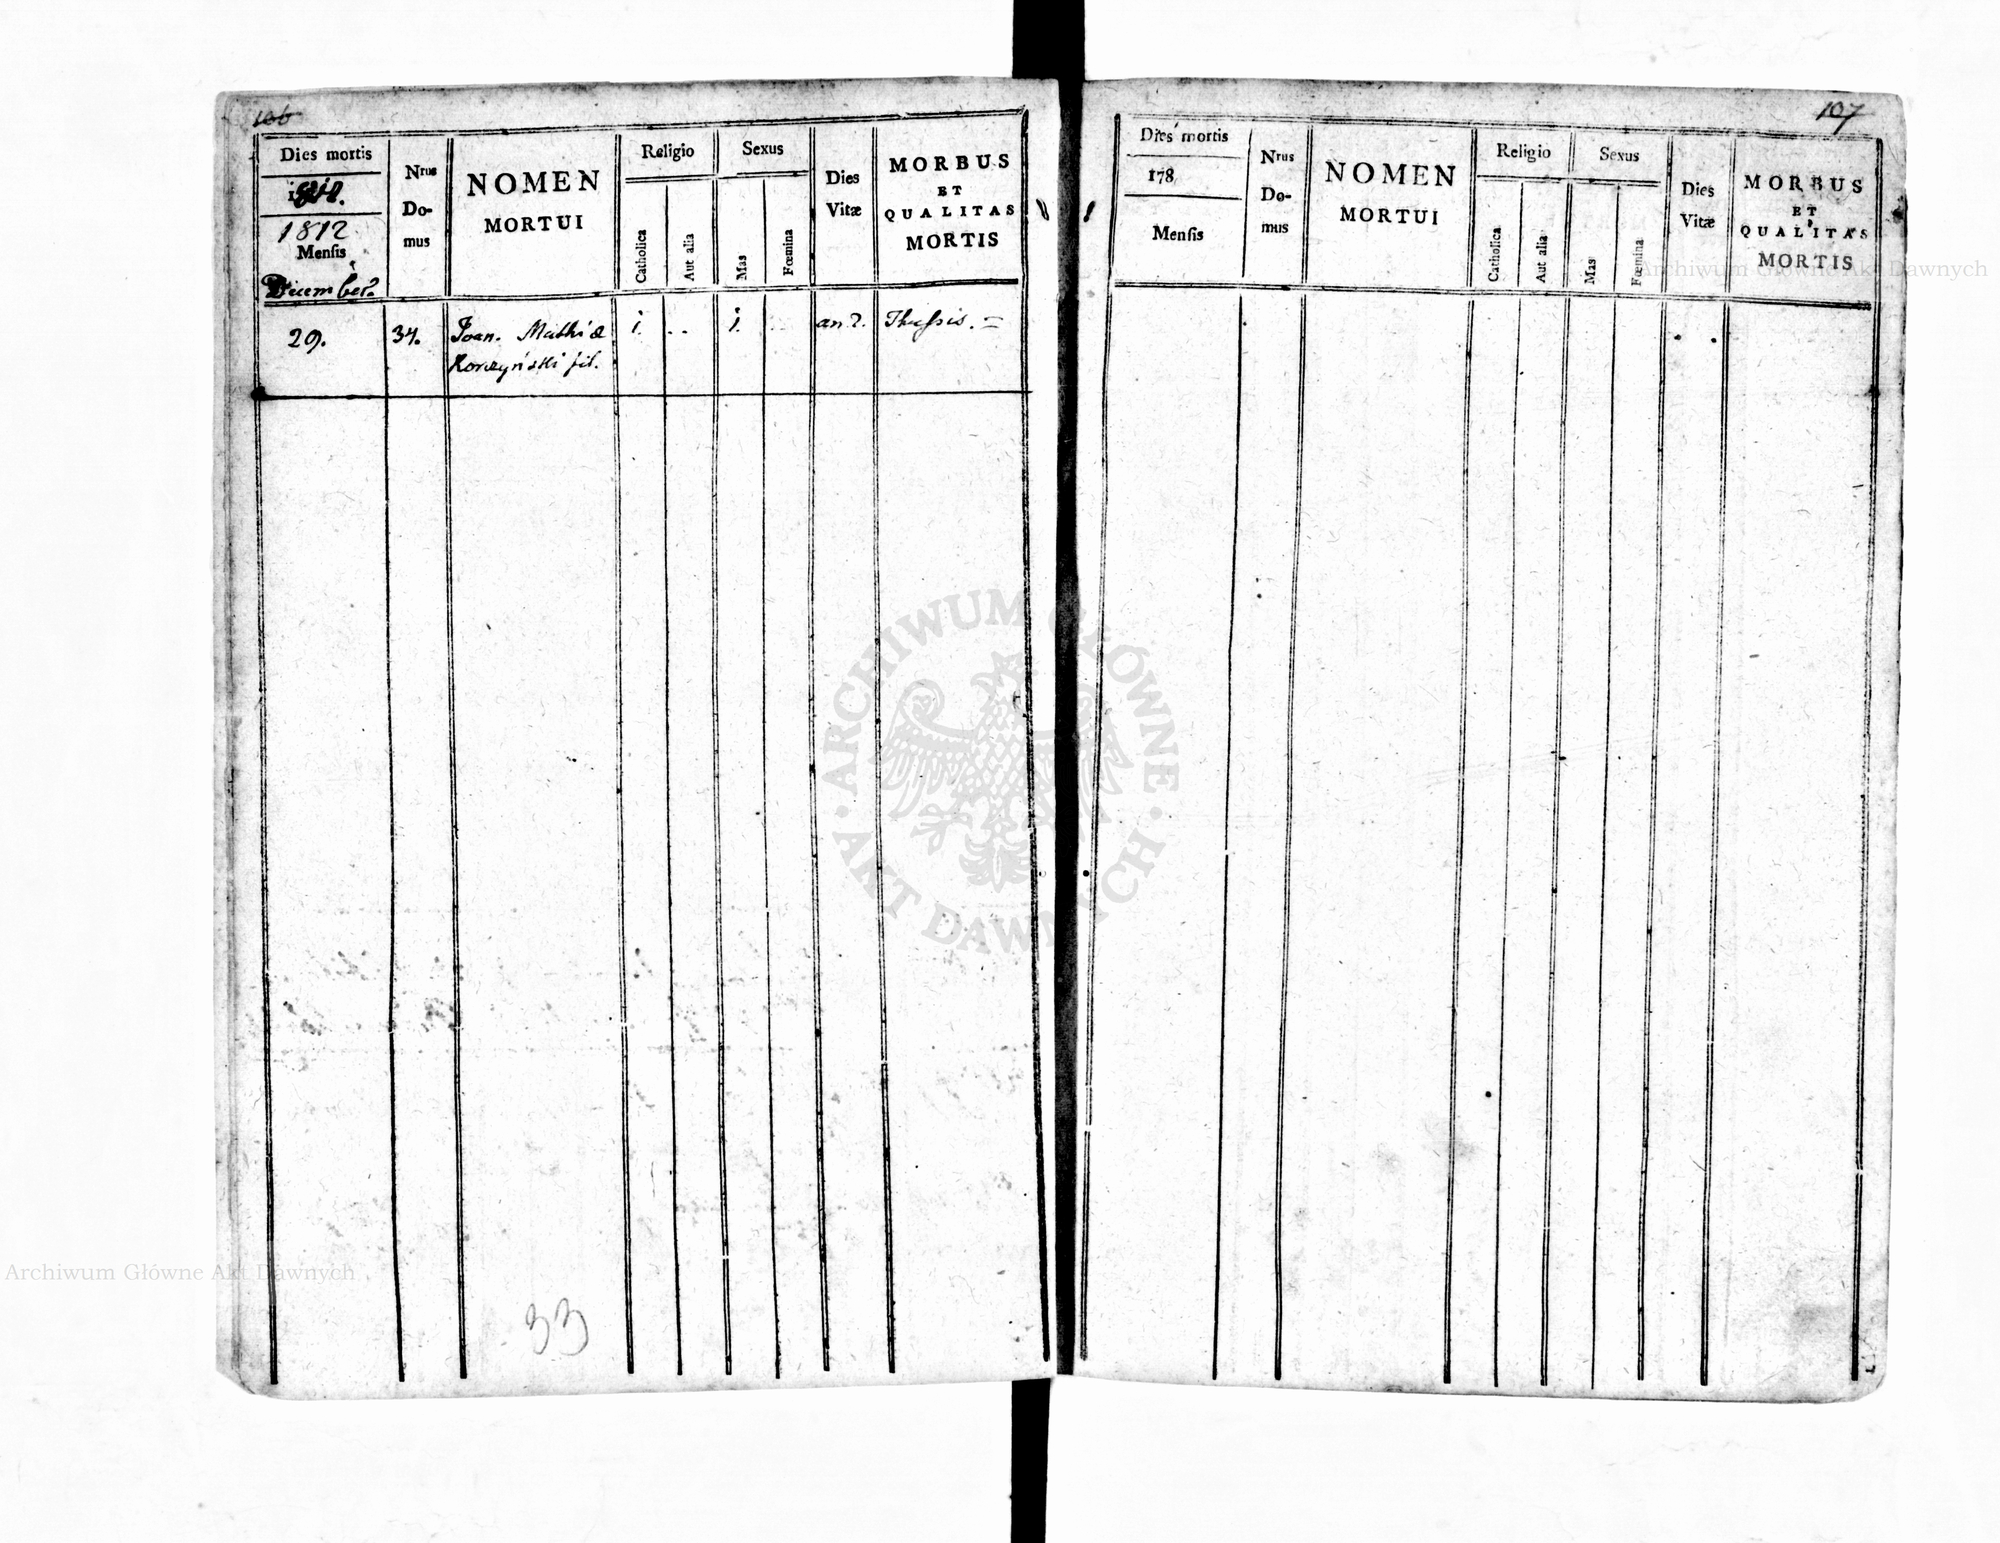 106
Dies mortis
1812
Mensis
December
Nrus
Do-
mus
NOMEN
MORTUI
Religio
Catholica
Aut alia
Sexus
Mas
Fœmina
Dies
Vitæ
MORBUS
ET
QUALITAS
MORTIS
29. 34. Joan. Mathiæ 1. .. 1. an. 2. Thussis. =
Korczyński fil.
33
107
Dies mortis
178
Mensis
Nrus
Do-
mus
NOMEN
MORTUI
Religio
Catholica
Aut alia
Sexus
Mas
Fœmina
Dies
Vitæ
MORBUS
ET
QUALITAS
MORTIS
Archiwum Główne Akt Dawnych
ARCHIWUM GŁÓWNE AKT DAWNYCH
Archiwum Główne Akt Dawnych